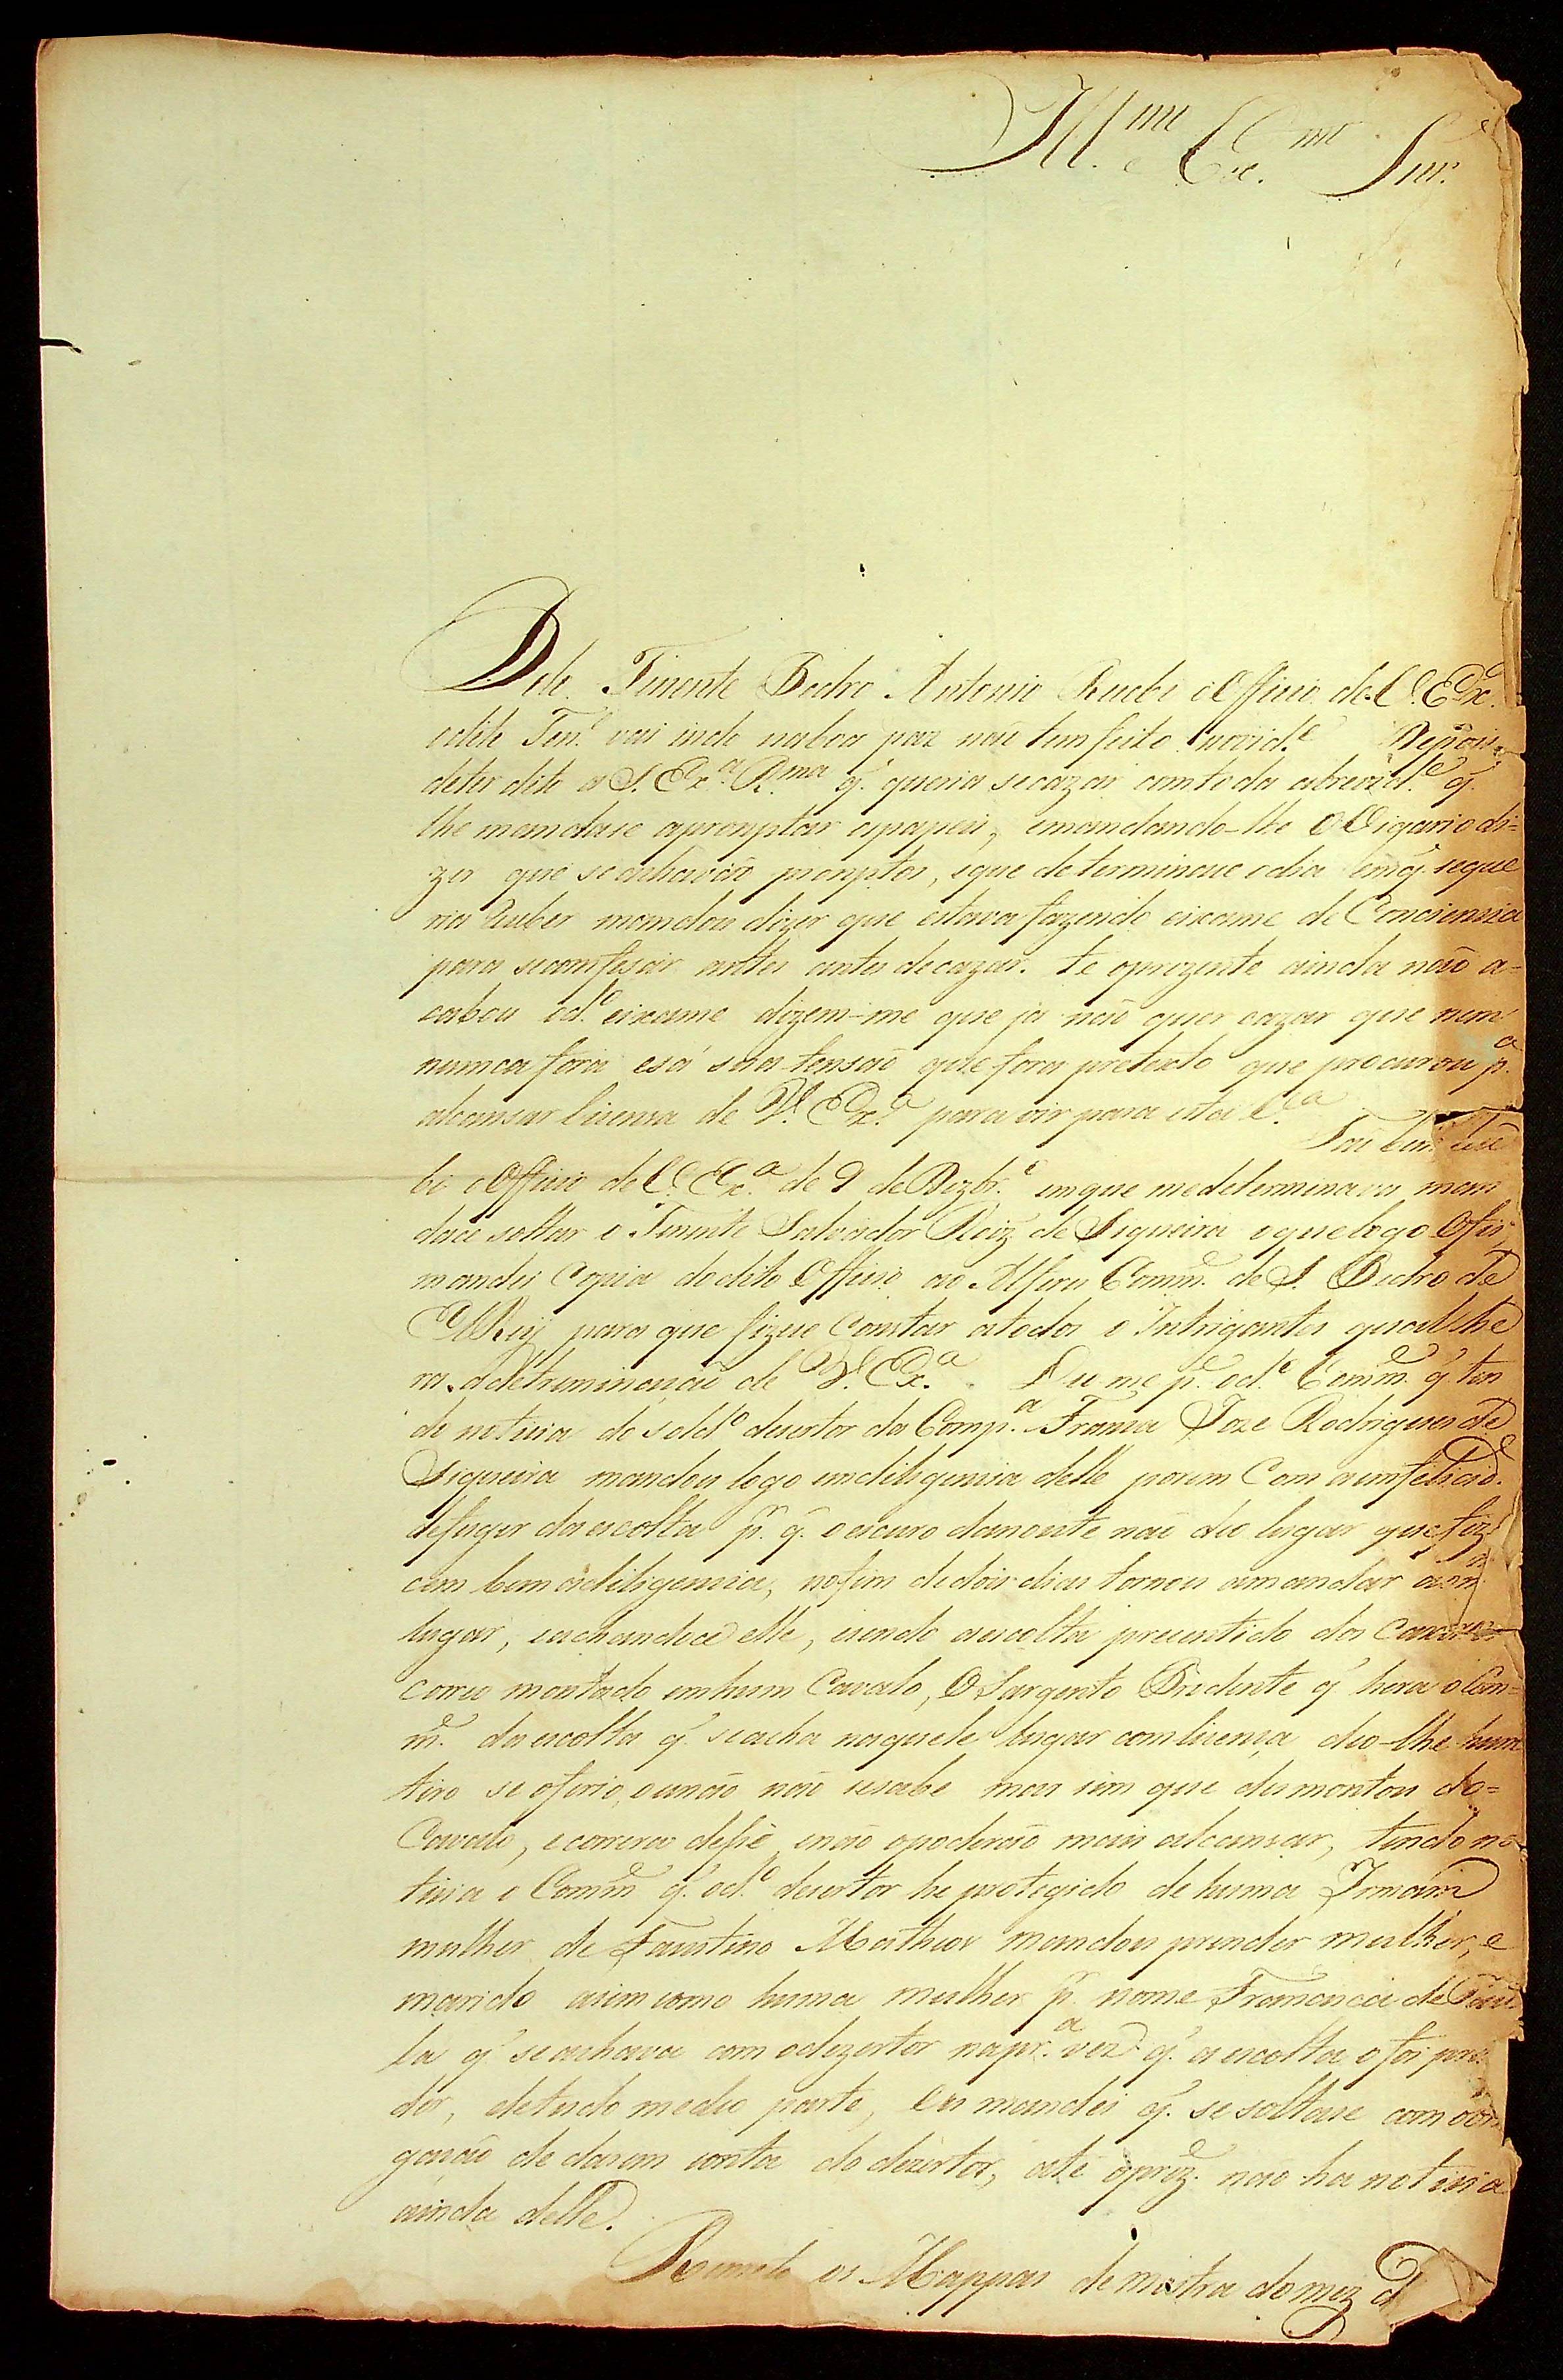 Ill.mo e Ex.mo Snr.
Do dito Tinente Pedro Antonio Recebi o Officio de V. Ex.a
o dito Ten.e vai indo na boa paz não tem feito novid.e Depois
de ter dito a S. Ex.a R.ma q. queria se cazar com toda a brevid.e q.
lhe mandase apronptar os papeis, e mandando-lhe o Vigario di=
zer que se achavão promptos, e que determinace o dia em q. se que
ria receber mandou dizer que estava fazendo eixame de Conciencia
para se comfesar antes de cazar. te o prezente ainda não a=
cabou o d.o eixame dizem-me que ja não quer cazar que nem
nunca fora esá sua tensão que fora pretexto que procurou p.a
alcansar licensa de V. Ex.a para vir para esta C.a
Tão bem rece
bi o Officio de V. Ex.a de 9 de Dezbr.o em que me determinava man
dace soltar o Tinente Salvador Roiz de Siqueira o que logo o fis,
mandei Copia do dito Officio ao Alferes Comm.e de S. Pedro de
ElRey para que fizece Constar a todos o Intrigantes qual he
ra a detriminacão de V. Ex.a Deu me p.e o d.o Comm.e q. ten
do noticia do sold.o desertor da Comp.a Franca Joze Rodrigues de
Siqueira mandou logo em diligencia delle porem Com a emfelicid.e
de fugir da escolta p.r q. o escuro da noute não deo lugar que fize
cem bem a diligencia, no fim de dois dias tornou a mandar ao m.mo
lugar, e achandoce elle, e sendo a escolta presentido dos Caxorros
correo montado em hum Cavalo, O Sargento Prudente q. hera o Com=
m.e da escolta q. se acha naquele lugar com licensa deo-lhe hum
tiro se o ferio, ou não não se sabe mas sim que desmontou do=
Cavalo, e correra de pé, e não o poderão mais alcansar, tendo no
ticia o Comm.e q. o d.o desertor he protegido de huma Irmám
mulher de Faustino Matheos mandou prender mulher, e
marido asim como huma mulher p.r nome Francisca de Pau
la q. se achava com o dezertor na pr.a vez q. a escolta o foi pren
der, de tudo me deo parte, eu mandei q. se soltase com obri
gasão de darem conta do dezertor, até o prez.e não ha noticia
ainda delle.
Remeto os Mappas de mostra do mez d